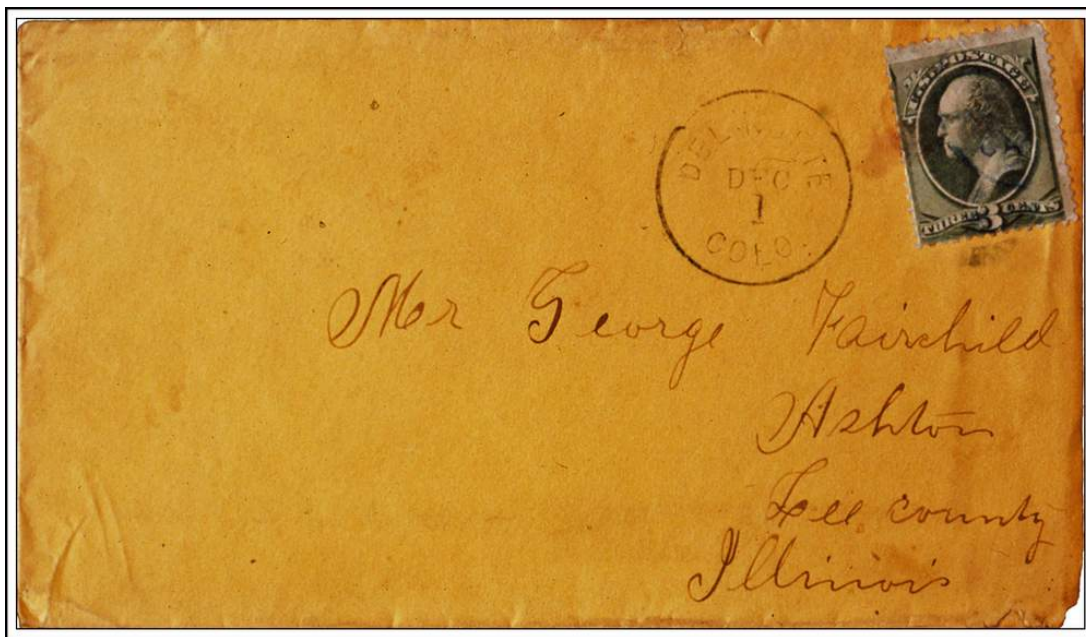 U.S. POSTAGE
THREE 3 CENTS
DEL NORTE
DEC
1
COLO.
Mr George Fairchild
Ashton
Lee county
Illinois